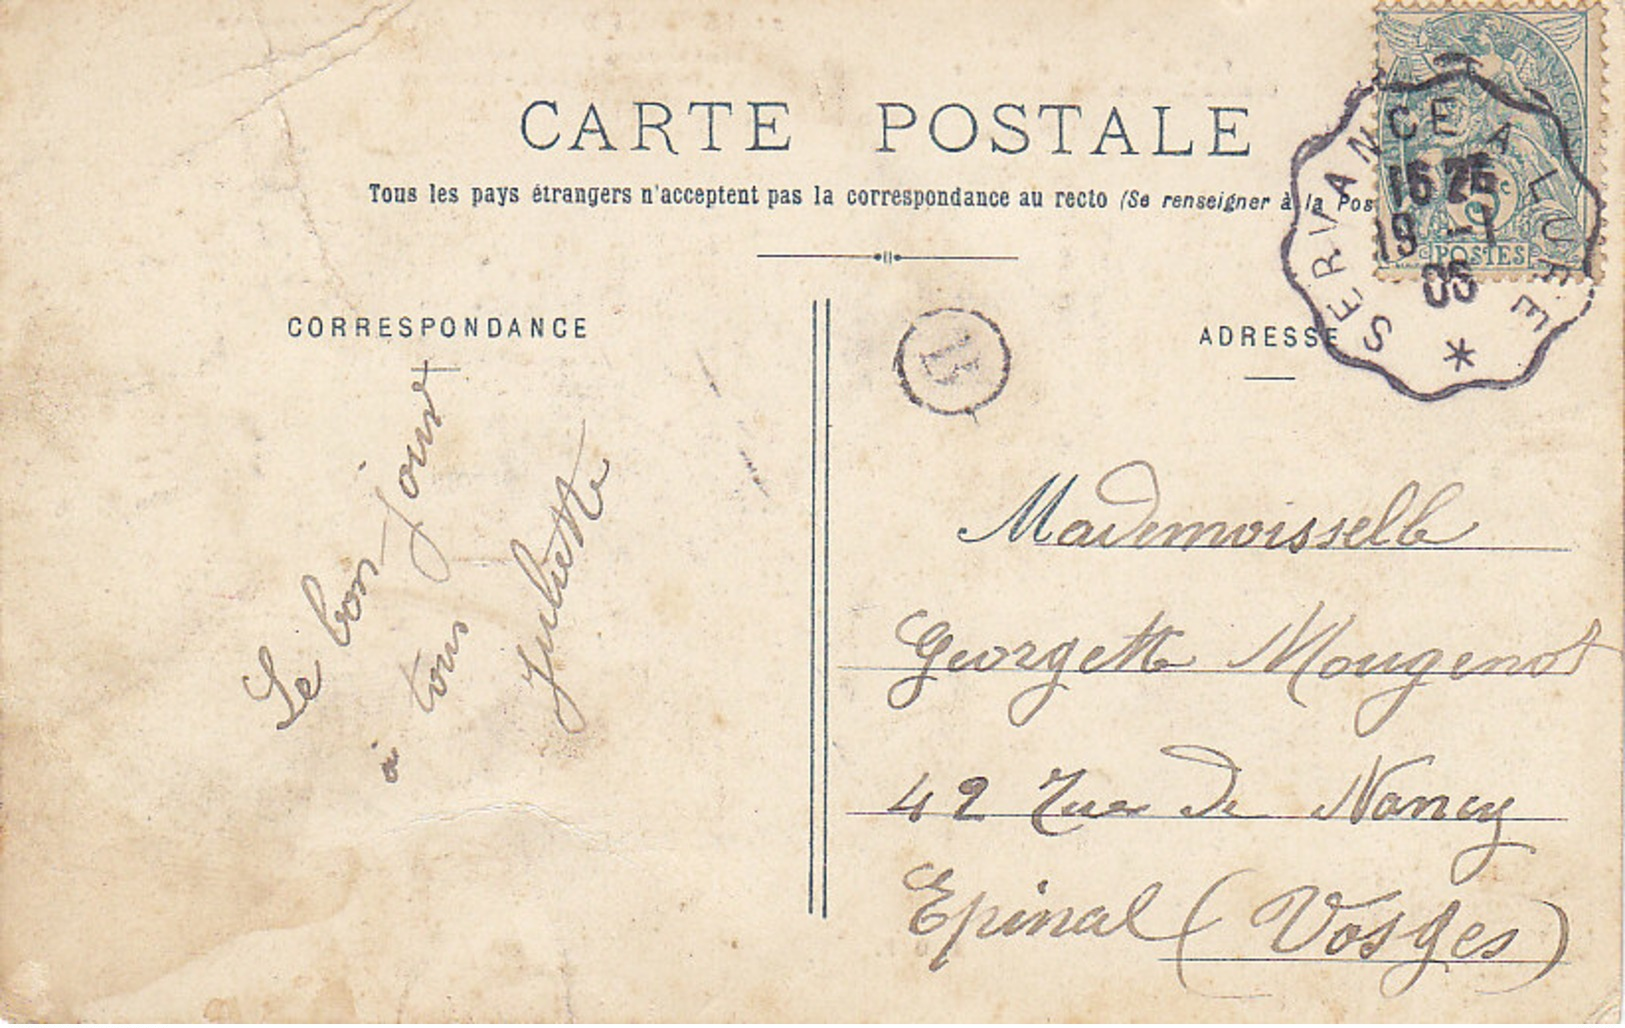 CARTE POSTALE
Tous les pays étrangers n'acceptent pas la correspondance au recto (Se renseigner à la Pos
CORRESPONDANCE
ADRESSE
SERVANCE A LURE
19 -1
POSTES
B
Le bon jour
à tous
Juliette
Mademoisselle
Georgette Mougenot
42 rue de Nancy
Epinal (Vosges)